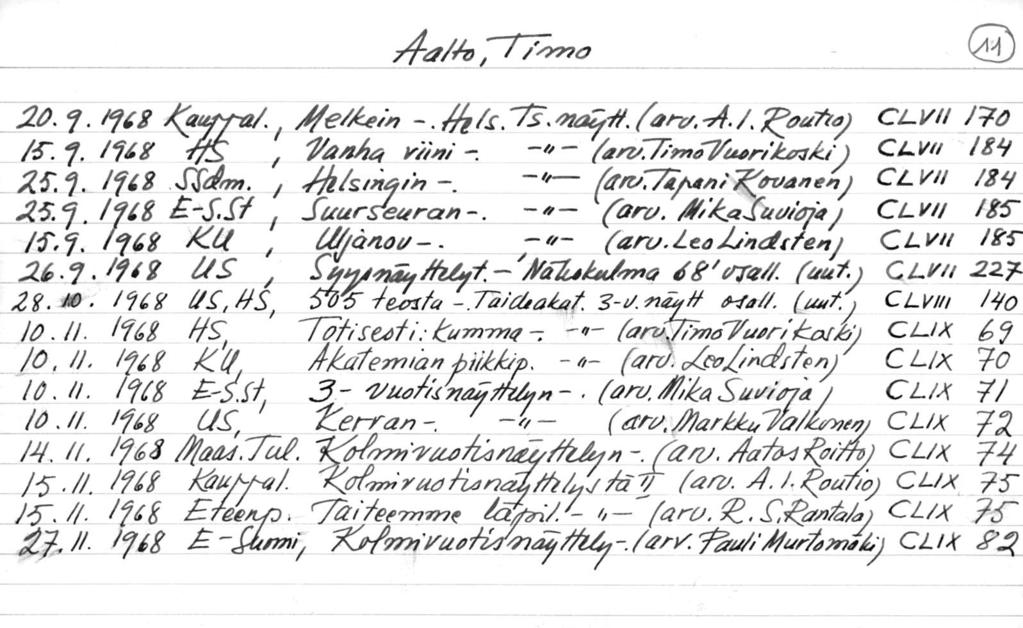 Aalto, Timo
11
20.9.1968 Kauppal., Melkein -. Hels. Ts. näytt. (arv. A.I. Routio) CLVII 170
15.9. 1968 HS, Vanha viini -. -"- (arv. Timo Vuorikoski) CLVII 184
25.9. 1968 SSdm., Helsingin -. -"- (arv. Tapani Kovanen) CLVII 184
25.9. 1968 E-S.St, Suurseuran -. -"- (arv. Mika Suvioja) CLVII 185
15.9. 1968 KU, Uljanov -. -"- (arv. Leo Lindsten) CLVII 185
26.9.1968 US, Syysnäyttelyt. - Näkökulma 68' osall. (uut.) CLVII 227
28.10. 1968 US, HS, 505 teosta - Taideakat. 3-v. näytt osall. (uut.) CLVIII 140
10.11. 1968 HS, Totisesti: kumma -. -"- (arv. Timo Vuorikoski) CLIX 69
10.11. 1968 KU, Akatemian piikkip. -"- (arv. Leo Lindsten) CLIX 70
10.11. 1968 E-S.St, 3-vuotisnäyttelyn -. (arv. Mika Suvioja) CLIX 71
10.11. 1968 US, Kerran -. -"- (arv. Markku Valkonen) CLIX 72
14.11. 1968 Maas. Tul. Kolmivuotisnäyttelyn -. (arv. Aatos Roitto) CLIX 74
15.11. 1968 Kauppal. Kolmivuotisnäyttelystä II (arv. A.I. Routio) CLIX 75
15.11. 1968 Eteenp. Taiteemme läpil. - "- (arv. R.S. Rantala) CLIX 75
27.11. 1968 E-Suomi, Kolmivuotisnäyttely -. (arv. Pauli Murtomäki) CLIX 82